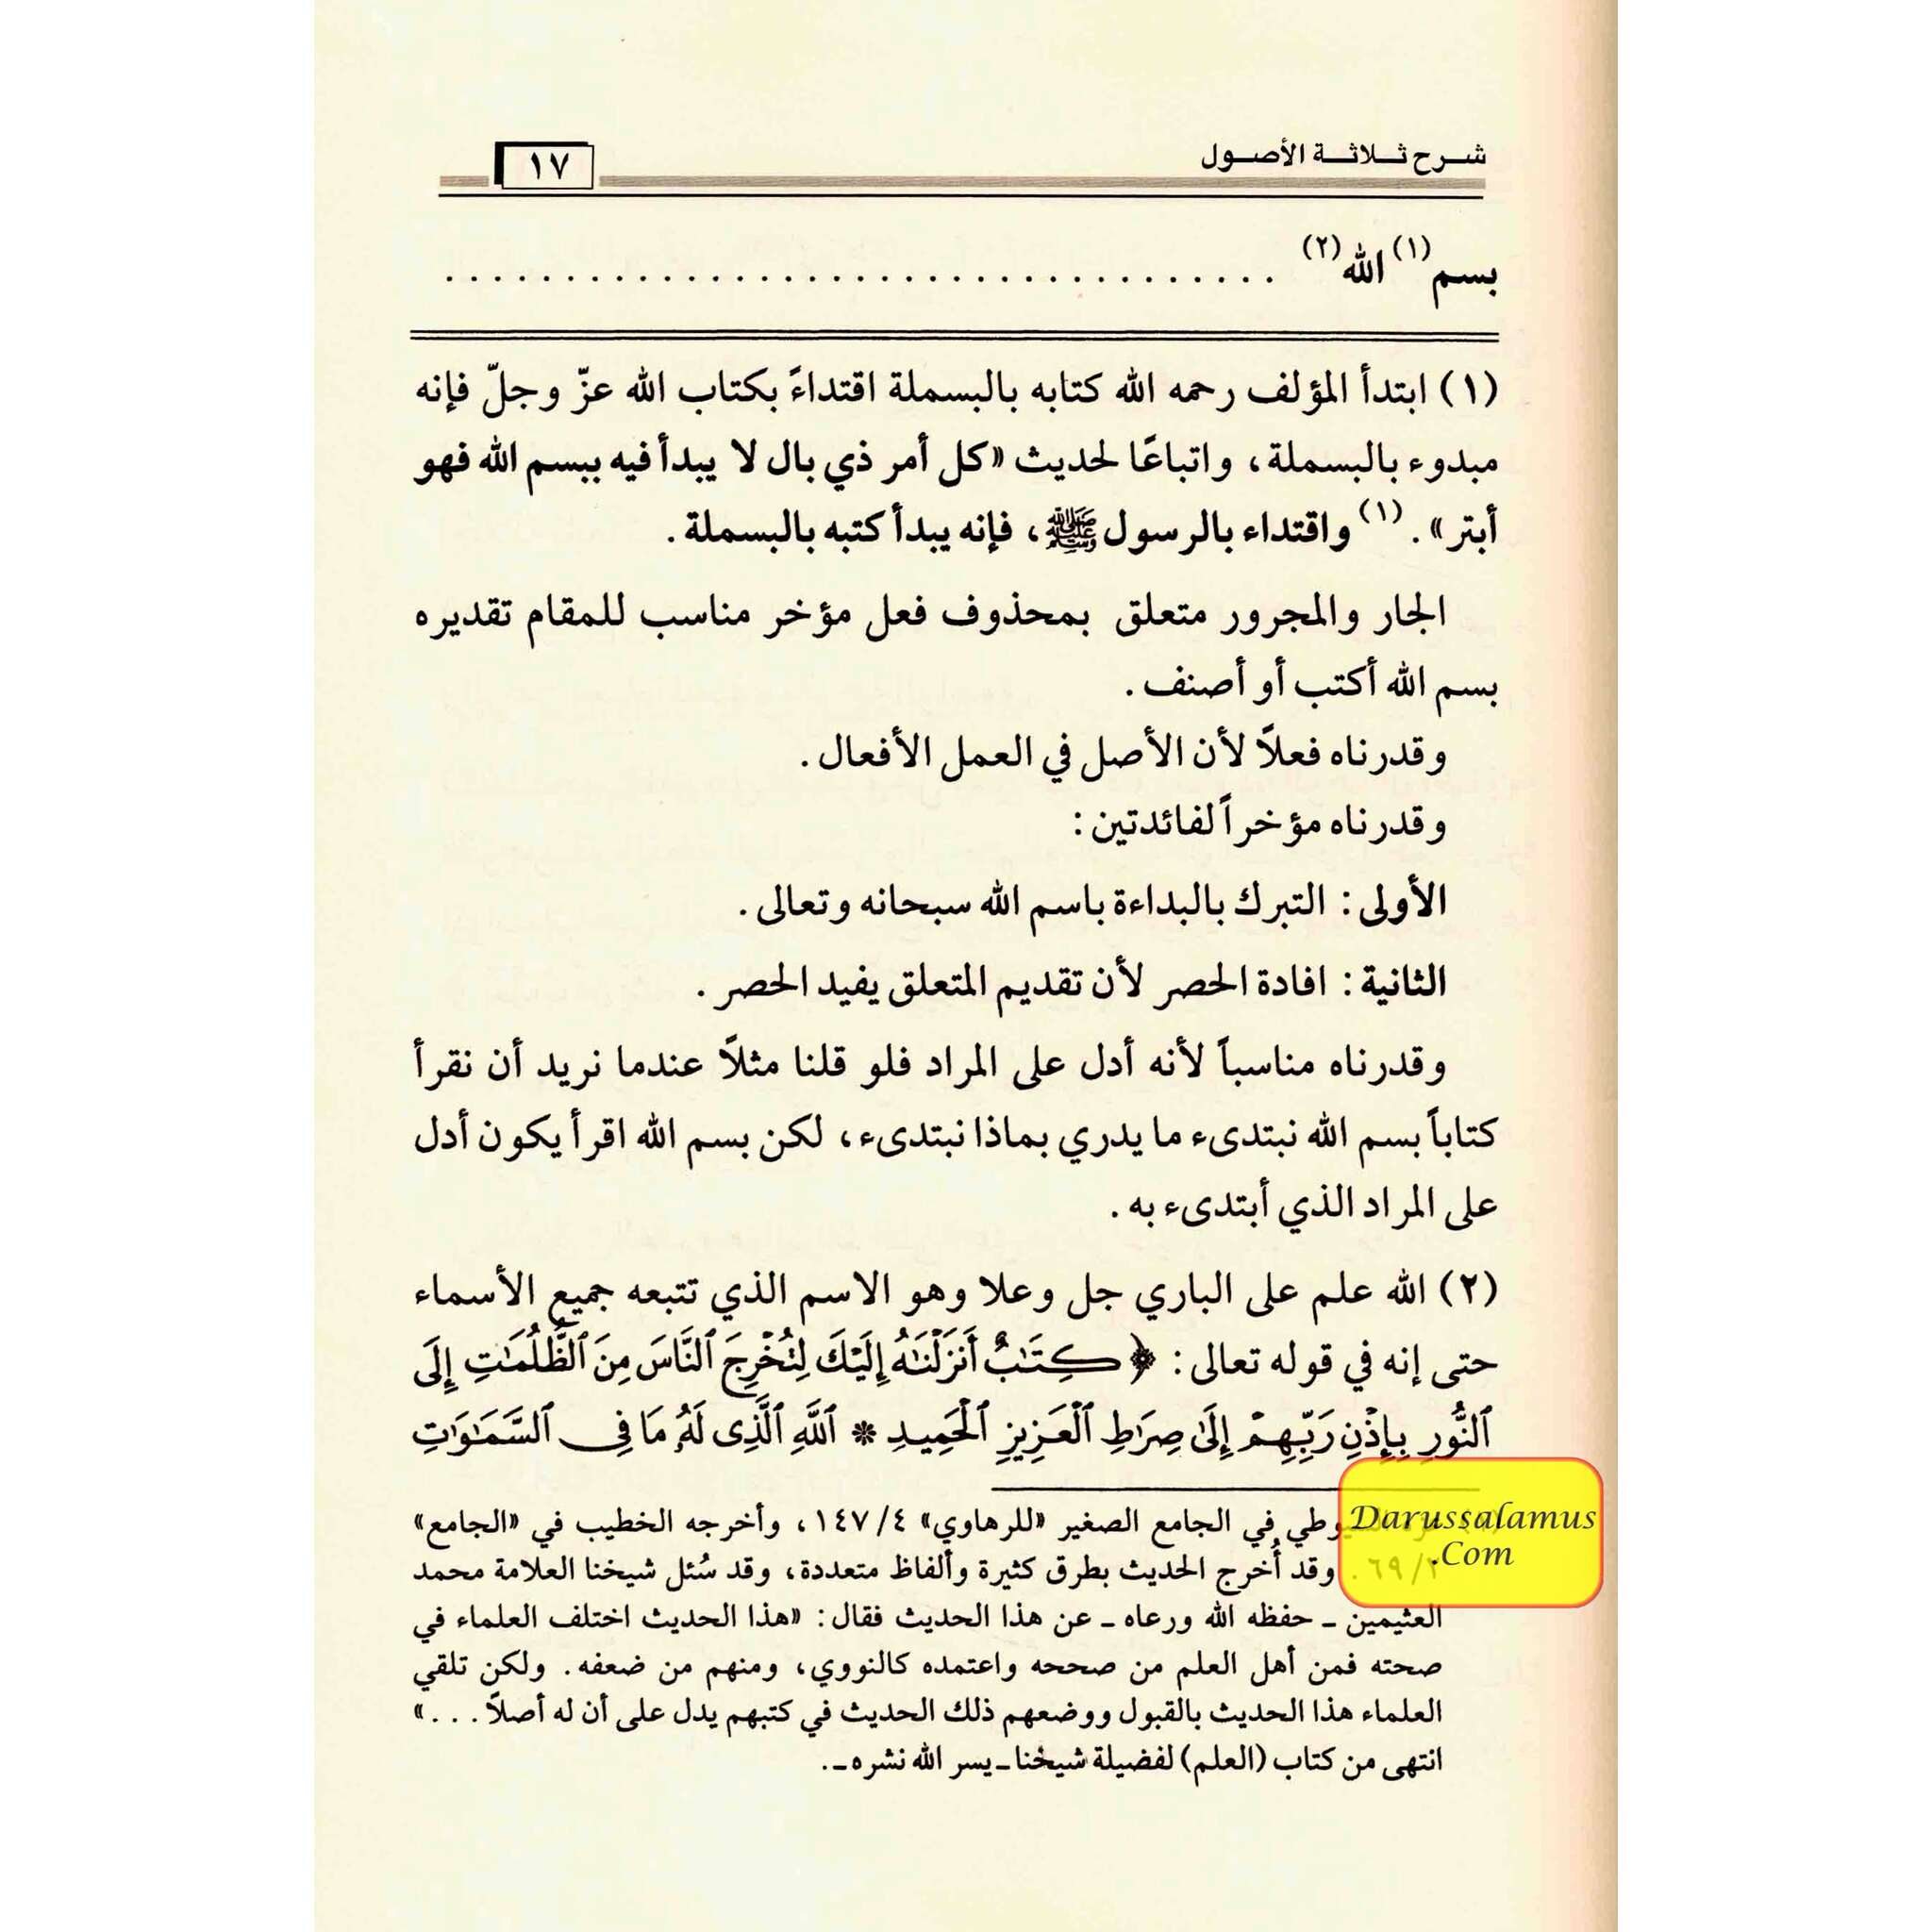 شرح ثلاثة الأصول
١٧
بسم(١) الله(٢) . . . . . . . . . . . . . . . . . . . . . . . . . . . . . . . . . . .
(١) ابتدأ المؤلف رحمه الله كتابه بالبسملة اقتداءً بكتاب الله عزّ وجلّ فإنه
مبدوء بالبسملة، واتباعًا لحديث «كل أمر ذي بال لا يبدأ فيه ببسم الله فهو
أبتر».(١) واقتداء بالرسول ﷺ، فإنه يبدأ كتبه بالبسملة.
الجار والمجرور متعلق بمحذوف فعل مؤخر مناسب للمقام تقديره
بسم الله أكتب أو أصنف.
وقدرناه فعلاً لأن الأصل في العمل الأفعال.
وقدرناه مؤخراً لفائدتين:
الأولى: التبرك بالبداءة باسم الله سبحانه وتعالى.
الثانية: افادة الحصر لأن تقديم المتعلق يفيد الحصر.
وقدرناه مناسباً لأنه أدل على المراد فلو قلنا مثلاً عندما نريد أن نقرأ
كتاباً بسم الله نبتدىء ما يدري بماذا نبتدىء، لكن بسم الله اقرأ يكون أدل
على المراد الذي أبتدىء به.
(٢) الله علم على الباري جل وعلا وهو الاسم الذي تتبعه جميع الأسماء
حتى إنه في قوله تعالى: ﴿كِتَٰبٌ أَنزَلْنَٰهُ إِلَيْكَ لِتُخْرِجَ ٱلنَّاسَ مِنَ ٱلظُّلُمَٰتِ إِلَى
ٱلنُّورِ بِإِذْنِ رَبِّهِمْ إِلَىٰ صِرَٰطِ ٱلْعَزِيزِ ٱلْحَمِيدِ * ٱللَّهِ ٱلَّذِى لَهُۥ مَا فِى ٱلسَّمَٰوَٰتِ
في الجامع الصغير «للرهاوي» ١٤٧/٤، وأخرجه الخطيب في «الجامع»
٦٩/٢. وقد أُخرج الحديث بطرق كثيرة وألفاظ متعددة، وقد سُئل شيخنا العلامة محمد
العثيمين ـ حفظه الله ورعاه ـ عن هذا الحديث فقال: «هذا الحديث اختلف العلماء في
صحته فمن أهل العلم من صححه واعتمده كالنووي، ومنهم من ضعفه. ولكن تلقي
العلماء هذا الحديث بالقبول ووضعهم ذلك الحديث في كتبهم يدل على أن له أصلاً...»
انتهى من كتاب (العلم) لفضيلة شيخنا ـ يسر الله نشره ـ.
Darussalamus
.Com